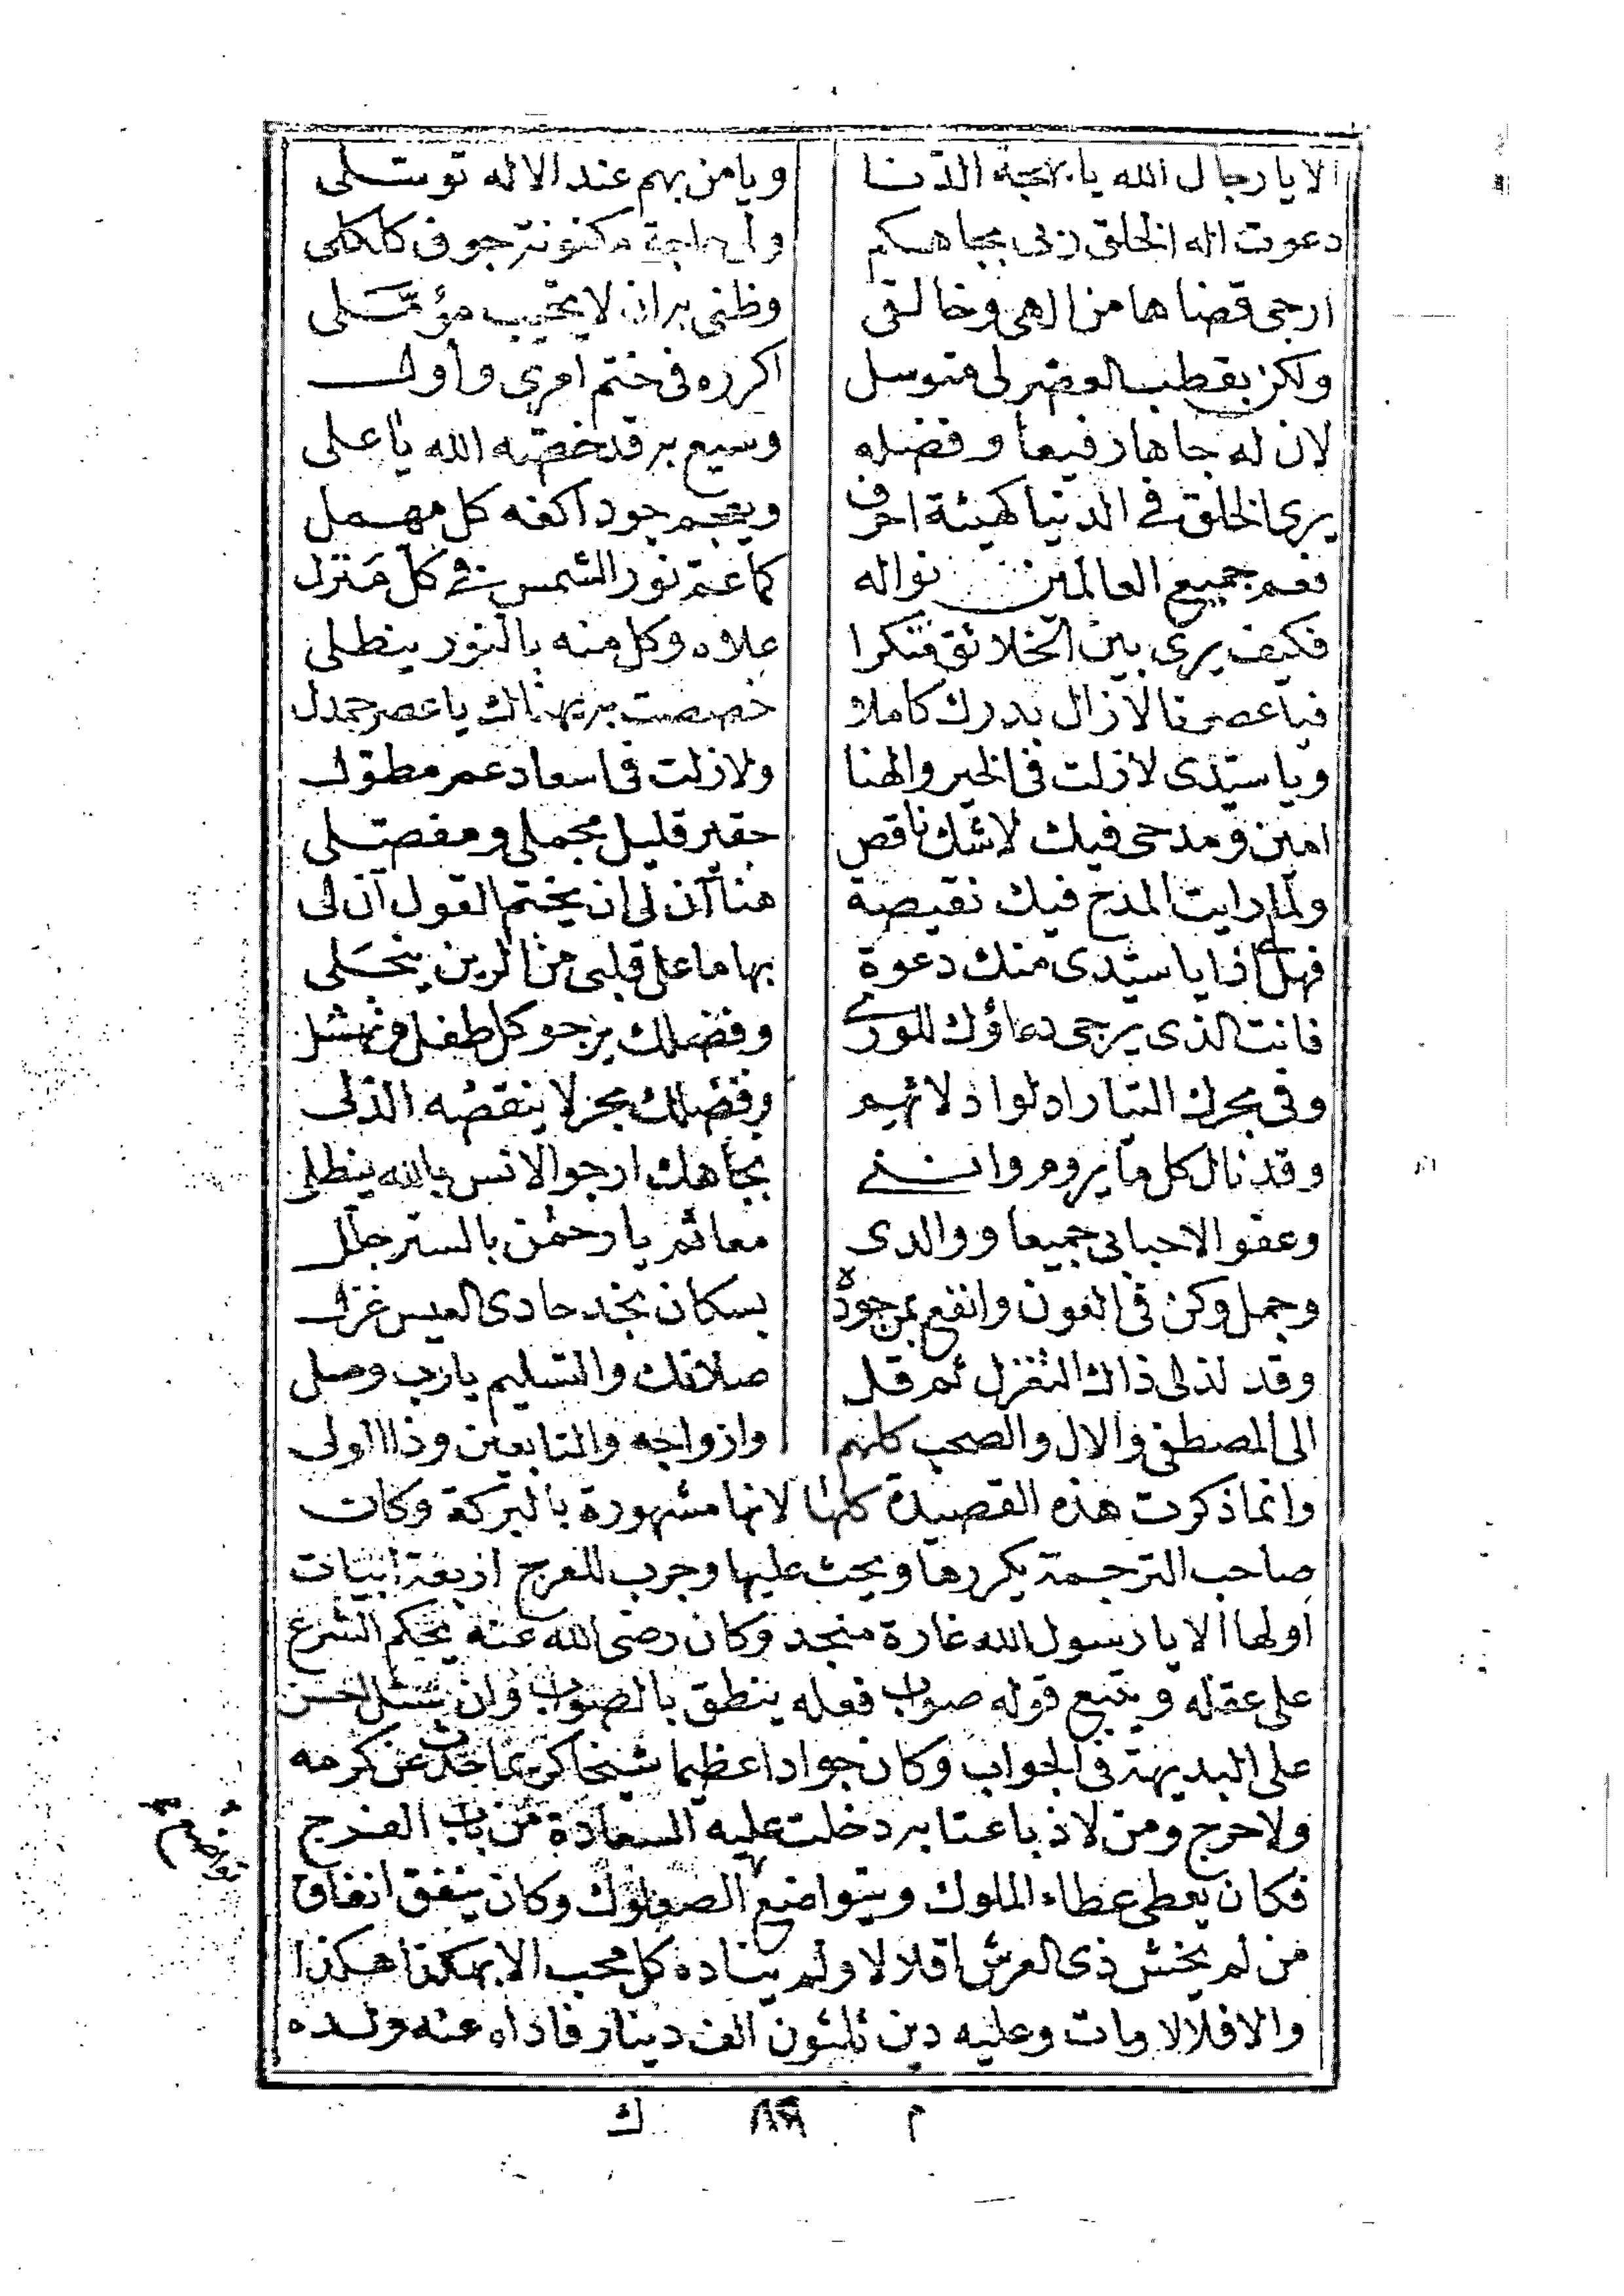 الا يا رجال الله يا بهجة الدنا ويا من بهم عند الاله توسلى
دعوت اله الخلق ربى بجاهكم ولى حاجة مكنونة جوف كلكلى
ارجى قضاها من الهى وخالقى وظنى به ان لا يخيب مؤملى
ولكن بقطب العصر لى متوسل اكرره فى ختم امرى واول
لان له جاها رفيعا وفضله وسيع به قد خصه الله يا على
يرى الخلق فى الدنيا كهيئة احرف ويعجم جود اكفه كل مهمل
فعم جميع العالمين نواله كما عم نور الشمس فى كل منزل
فكيف يرى بين الخلائق منكرا علاه وكل منه بالنور ينطلى
فيا عصرنا لا زال بدرك كاملا خصصت به يهناك يا عصر
ويا سيدى لا زلت فى الخير والهنا ولا زلت فى اسعاد عمر مطول
امين ومدحى فيك لا شك ناقص حقير قليل مجملى ومفصلى
ولما رايت المدح فيك نقيصة هنا آن لى ان يختم القول آن لى
فهل لى اذا يا سيدى منك دعوة بها ما على قلبى من الرين ينجلى
فانت الذى يرجى دعاؤك للورى وفضلك يرجو كل طفل
وفى بحرك التيار ادلوا دلائهم وفضلك بحر لا ينقصه الدلى
وقد نال كل ما يروم واننى بجاهك ارجو الانس بالله ينطلى
وعفو الاحبابى جميعا ووالدى معاثم يا رحمن بالستر جلل
وجمل وكن فى العون وانفع بمرجوه بسكان نجد حادى العيس غزل
وقد لذ لى ذاك التغزل ثم قل صلاتك والتسليم يا رب وصل
الى المصطفى والال والصحب كلهم وازواجه والتابعين وذا اولى
وانما ذكرت هذه القصيدة كلها لانها مشهورة بالبركة وكان
صاحب الترجمة يكررها ويحث عليها وجرب للفرج اربعة ابيات
اولها الا يا رسول الله غارة منجد وكان رضى الله عنه يحكم الشرع
على عقله ويتبع قوله صواب فعله ينطق بالصواب وان سئل احسن
على البديهة فى الجواب وكان جوادا عظيما شيخا كريما حدث عن كرمه
ولا حرج ومن لاذ باعتابه دخلت عليه السعادة من باب الفرج
فكان يعطى عطاء الملوك ويتواضع الصعلوك وكان ينفق انفاق
من لم يخش ذى العرش اقلالا ولم يناده كل محب الا بهكذا هكذا
والا فلا لا ومات وعليه دين ثلثون الف دينار فاداه عنه ولده
م ك